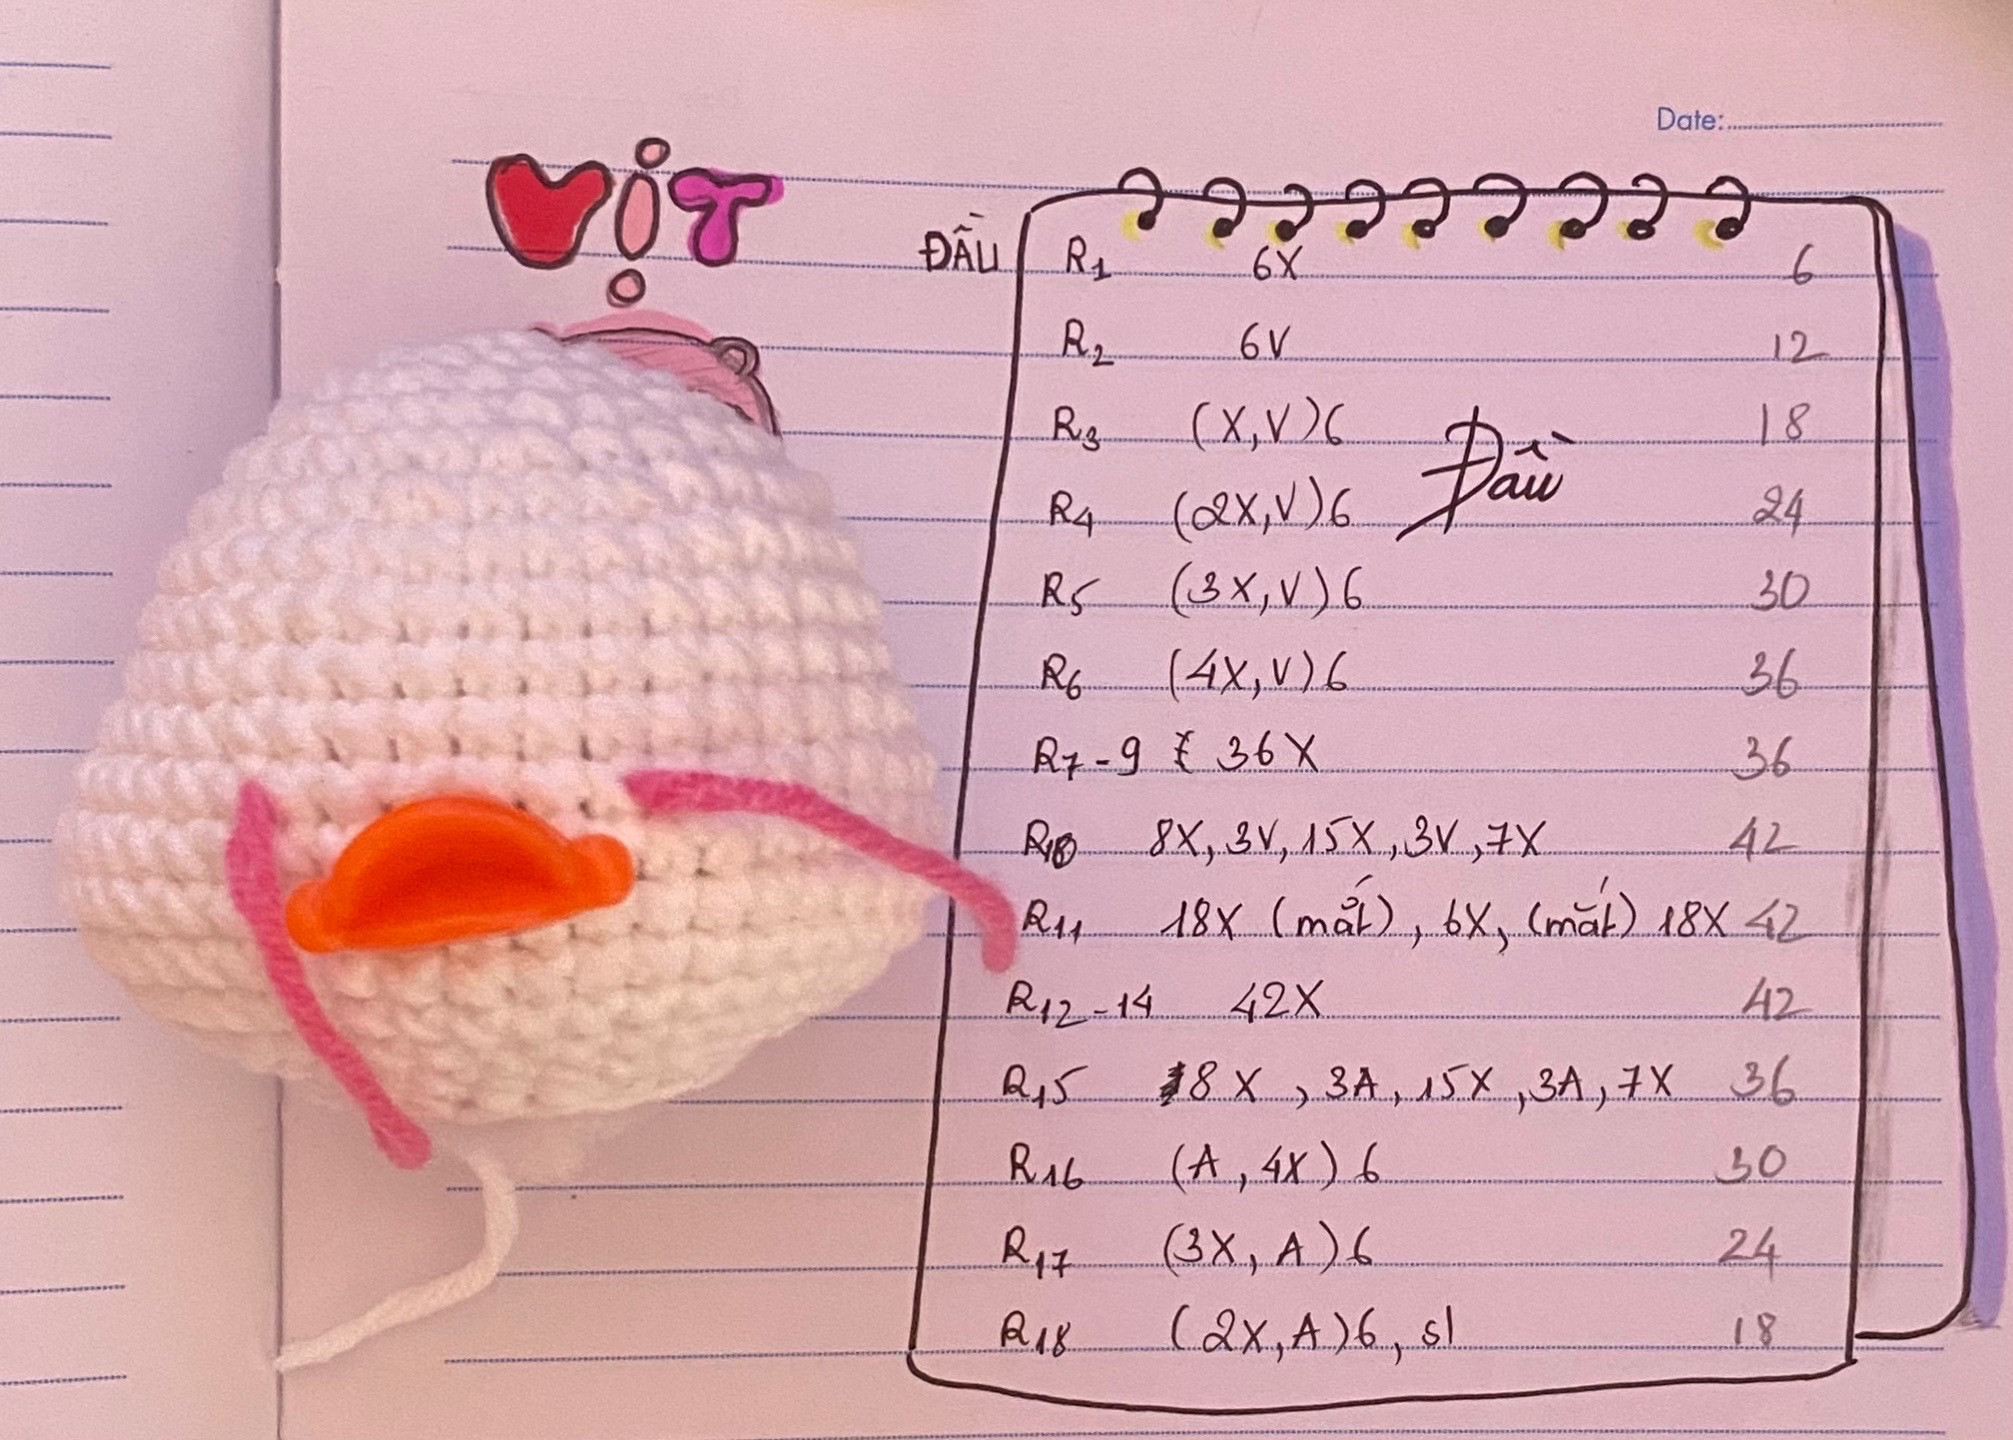 Date:
VỊT
ĐẦU R1 6X 6
R2 6V 12
R3 (X,V)6 18
Đầu
R4 (2X,V)6 24
R5 (3X,V)6 30
R6 (4X,V)6 36
R7-9 36X 36
R10 8X, 3V, 15X, 3V, 7X 42
R11 18X (mắt), 6X, (mắt) 18X 42
R12-14 42X 42
R15 8X, 3A, 15X, 3A, 7X 36
R16 (A, 4X)6 30
R17 (3X, A)6 24
R18 (2X, A)6, sl 18